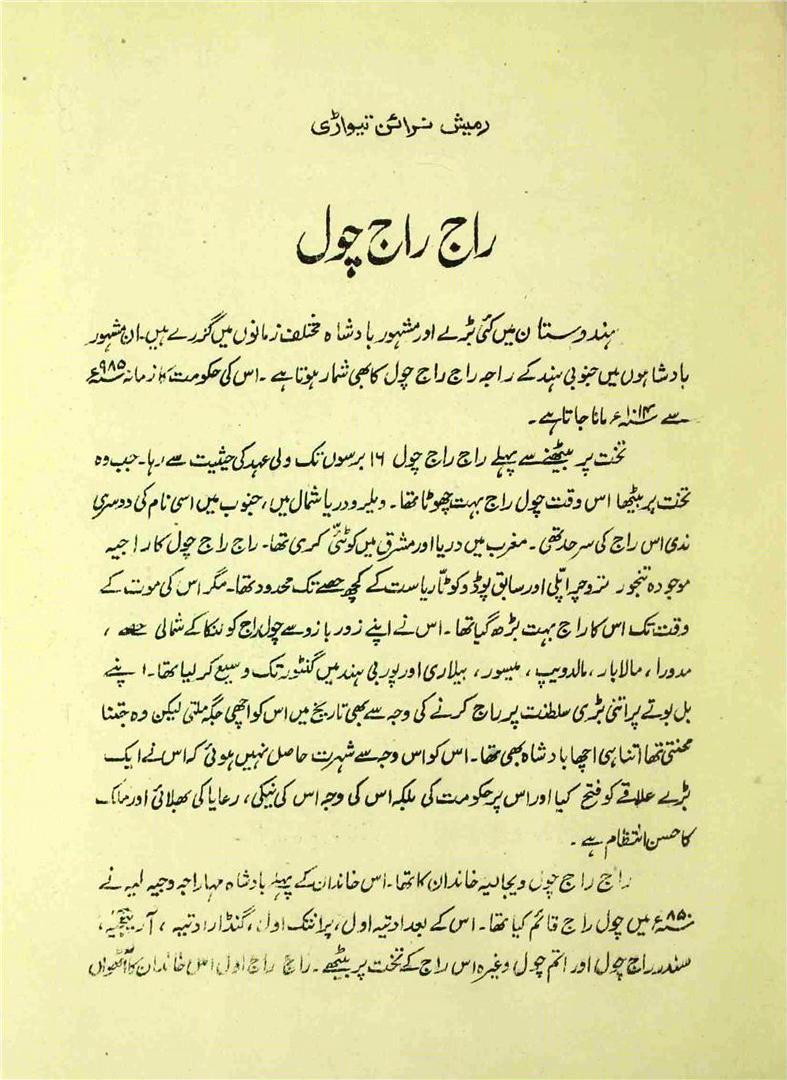 رمیش نرائن تیواڑی
راج راج چول
ہندوستان میں کئی بڑے اور مشہور بادشاہ مختلف زمانوں میں گزرے ہیں۔ ان مشہور
بادشاہوں میں جنوبی ہند کے راجہ راج راج چول کا بھی شمار ہوتا ہے۔ اس کی حکومت کا زمانہ ۹۸۵ء
سے ۱۰۱۴ء مانا جاتا ہے۔
تخت پر بیٹھنے سے پہلے راج راج چول ۱۶ برسوں تک ولی عہد کی حیثیت سے رہا۔ جب وہ
تخت پر بیٹھا اس وقت چول راج بہت چھوٹا تھا۔ ویلرو دریا شمال میں، جنوب میں اسی نام کی دوسری
ندی اس راج کی سرحد تھی۔ مغرب میں دریا اور مشرق میں کوٹئی کری تھا۔ راج راج چول کا راجیہ
موجودہ تنجور تروچراپلی اور سابق پوڈوکوٹا ریاست کے کچھ حصے تک محدود تھا۔ مگر اس کی موت کے
وقت تک اس کا راج بہت بڑھ گیا تھا۔ اس نے اپنے زور بازو سے چول راج کو لنکا کے شمالی حصے،
مدورا، مالابار، مالدویپ، میسور، بیلاری اور پوربی ہند میں گنٹور تک وسیع کر لیا تھا۔ اپنے
بل بوتے پر اتنی بڑی سلطنت پر راج کرنے کی وجہ سے بھی تاریخ میں اس کو اچھی جگہ ملتی لیکن وہ جتنا
محنتی تھا اتنا ہی اچھا بادشاہ بھی تھا۔ اس کو اس وجہ سے شہرت حاصل نہیں ہوئی کہ اس نے ایک
بڑے علاقے کو فتح کیا اور اس پر حکومت کی بلکہ اس کی وجہ اس کی نیکی، رعایا کی بھلائی اور ملک
کا حسن انتظام ہے۔
راج راج چول ویجالیہ خاندان کا تھا۔ اس خاندان کے پہلے بادشاہ مہاراجہ وجیہ لیہ نے
۸۵۰ء میں چول راج قائم کیا تھا۔ اس کے بعد ادتیہ اول، پرانتک اول، گنڈارادتیہ،
سندر راج چول اور اتم چول وغیرہ اس راج کے تخت پر بیٹھے۔ راج راج اول اس خاندان کا آٹھواں